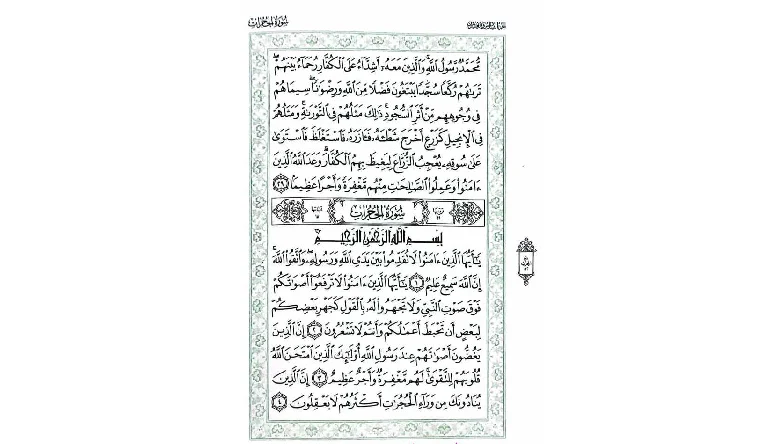 سُورَةُ الحُجُرَاتِ
مُّحَمَّدٌ رَّسُولُ ٱللَّهِ وَٱلَّذِينَ مَعَهُۥٓ أَشِدَّآءُ عَلَى ٱلْكُفَّارِ رُحَمَآءُ بَيْنَهُمْ
تَرَىٰهُمْ رُكَّعًا سُجَّدًا يَبْتَغُونَ فَضْلًا مِّنَ ٱللَّهِ وَرِضْوَٰنًا سِيمَاهُمْ
فِى وُجُوهِهِم مِّنْ أَثَرِ ٱلسُّجُودِ ذَٰلِكَ مَثَلُهُمْ فِى ٱلتَّوْرَىٰةِ وَمَثَلُهُمْ
فِى ٱلْإِنجِيلِ كَزَرْعٍ أَخْرَجَ شَطْـَٔهُۥ فَـَٔازَرَهُۥ فَٱسْتَغْلَظَ فَٱسْتَوَىٰ
عَلَىٰ سُوقِهِۦ يُعْجِبُ ٱلزُّرَّاعَ لِيَغِيظَ بِهِمُ ٱلْكُفَّارَ وَعَدَ ٱللَّهُ ٱلَّذِينَ
ءَامَنُوا۟ وَعَمِلُوا۟ ٱلصَّـٰلِحَـٰتِ مِنْهُم مَّغْفِرَةً وَأَجْرًا عَظِيمًۢا ٢٩
سُورَةُ الحُجُرَاتِ
بِسْمِ ٱللَّهِ ٱلرَّحْمَـٰنِ ٱلرَّحِيمِ
يَـٰٓأَيُّهَا ٱلَّذِينَ ءَامَنُوا۟ لَا تُقَدِّمُوا۟ بَيْنَ يَدَىِ ٱللَّهِ وَرَسُولِهِۦ وَٱتَّقُوا۟ ٱللَّهَ
إِنَّ ٱللَّهَ سَمِيعٌ عَلِيمٌ ١ يَـٰٓأَيُّهَا ٱلَّذِينَ ءَامَنُوا۟ لَا تَرْفَعُوٓا۟ أَصْوَٰتَكُمْ
فَوْقَ صَوْتِ ٱلنَّبِىِّ وَلَا تَجْهَرُوا۟ لَهُۥ بِٱلْقَوْلِ كَجَهْرِ بَعْضِكُمْ
لِبَعْضٍ أَن تَحْبَطَ أَعْمَـٰلُكُمْ وَأَنتُمْ لَا تَشْعُرُونَ ٢ إِنَّ ٱلَّذِينَ
يَغُضُّونَ أَصْوَٰتَهُمْ عِندَ رَسُولِ ٱللَّهِ أُو۟لَـٰٓئِكَ ٱلَّذِينَ ٱمْتَحَنَ ٱللَّهُ
قُلُوبَهُمْ لِلتَّقْوَىٰ لَهُم مَّغْفِرَةٌ وَأَجْرٌ عَظِيمٌ ٣ إِنَّ ٱلَّذِينَ
يُنَادُونَكَ مِن وَرَآءِ ٱلْحُجُرَٰتِ أَكْثَرُهُمْ لَا يَعْقِلُونَ ٤